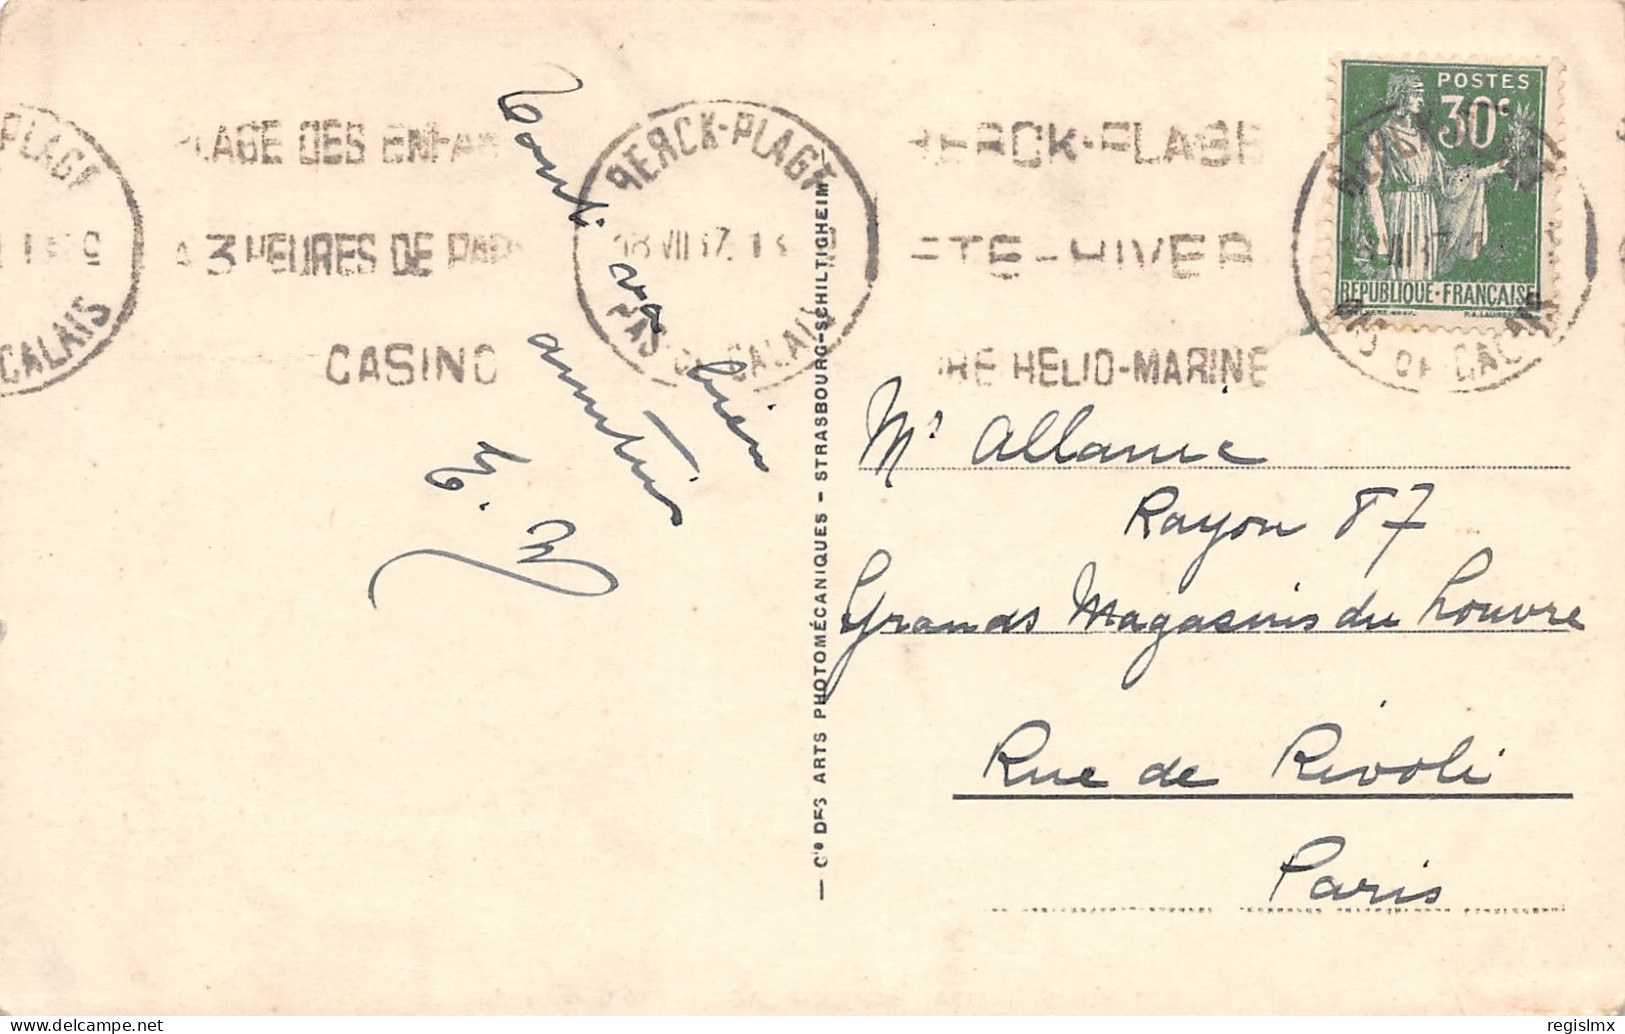 PLAGE
CALAIS
LAGE DES ENFAN
A 3 HEURES DE PAR
CASINO
BERCK-PLAGE
18 VII 37
PAS DE CALAIS
BERCK-PLAGE
ETE-HIVER
RE HELIO-MARINE
POSTES
30c
REPUBLIQUE·FRANÇAISE
Tout va bien
amitiés
— Cie DES ARTS PHOTOMÉCANIQUES - STRASBOURG-SCHILTIGHEIM
Mr Allanic
Rayon 87
Grands Magasins du Louvre
Rue de Rivoli
Paris
delcampe.net
regislmx